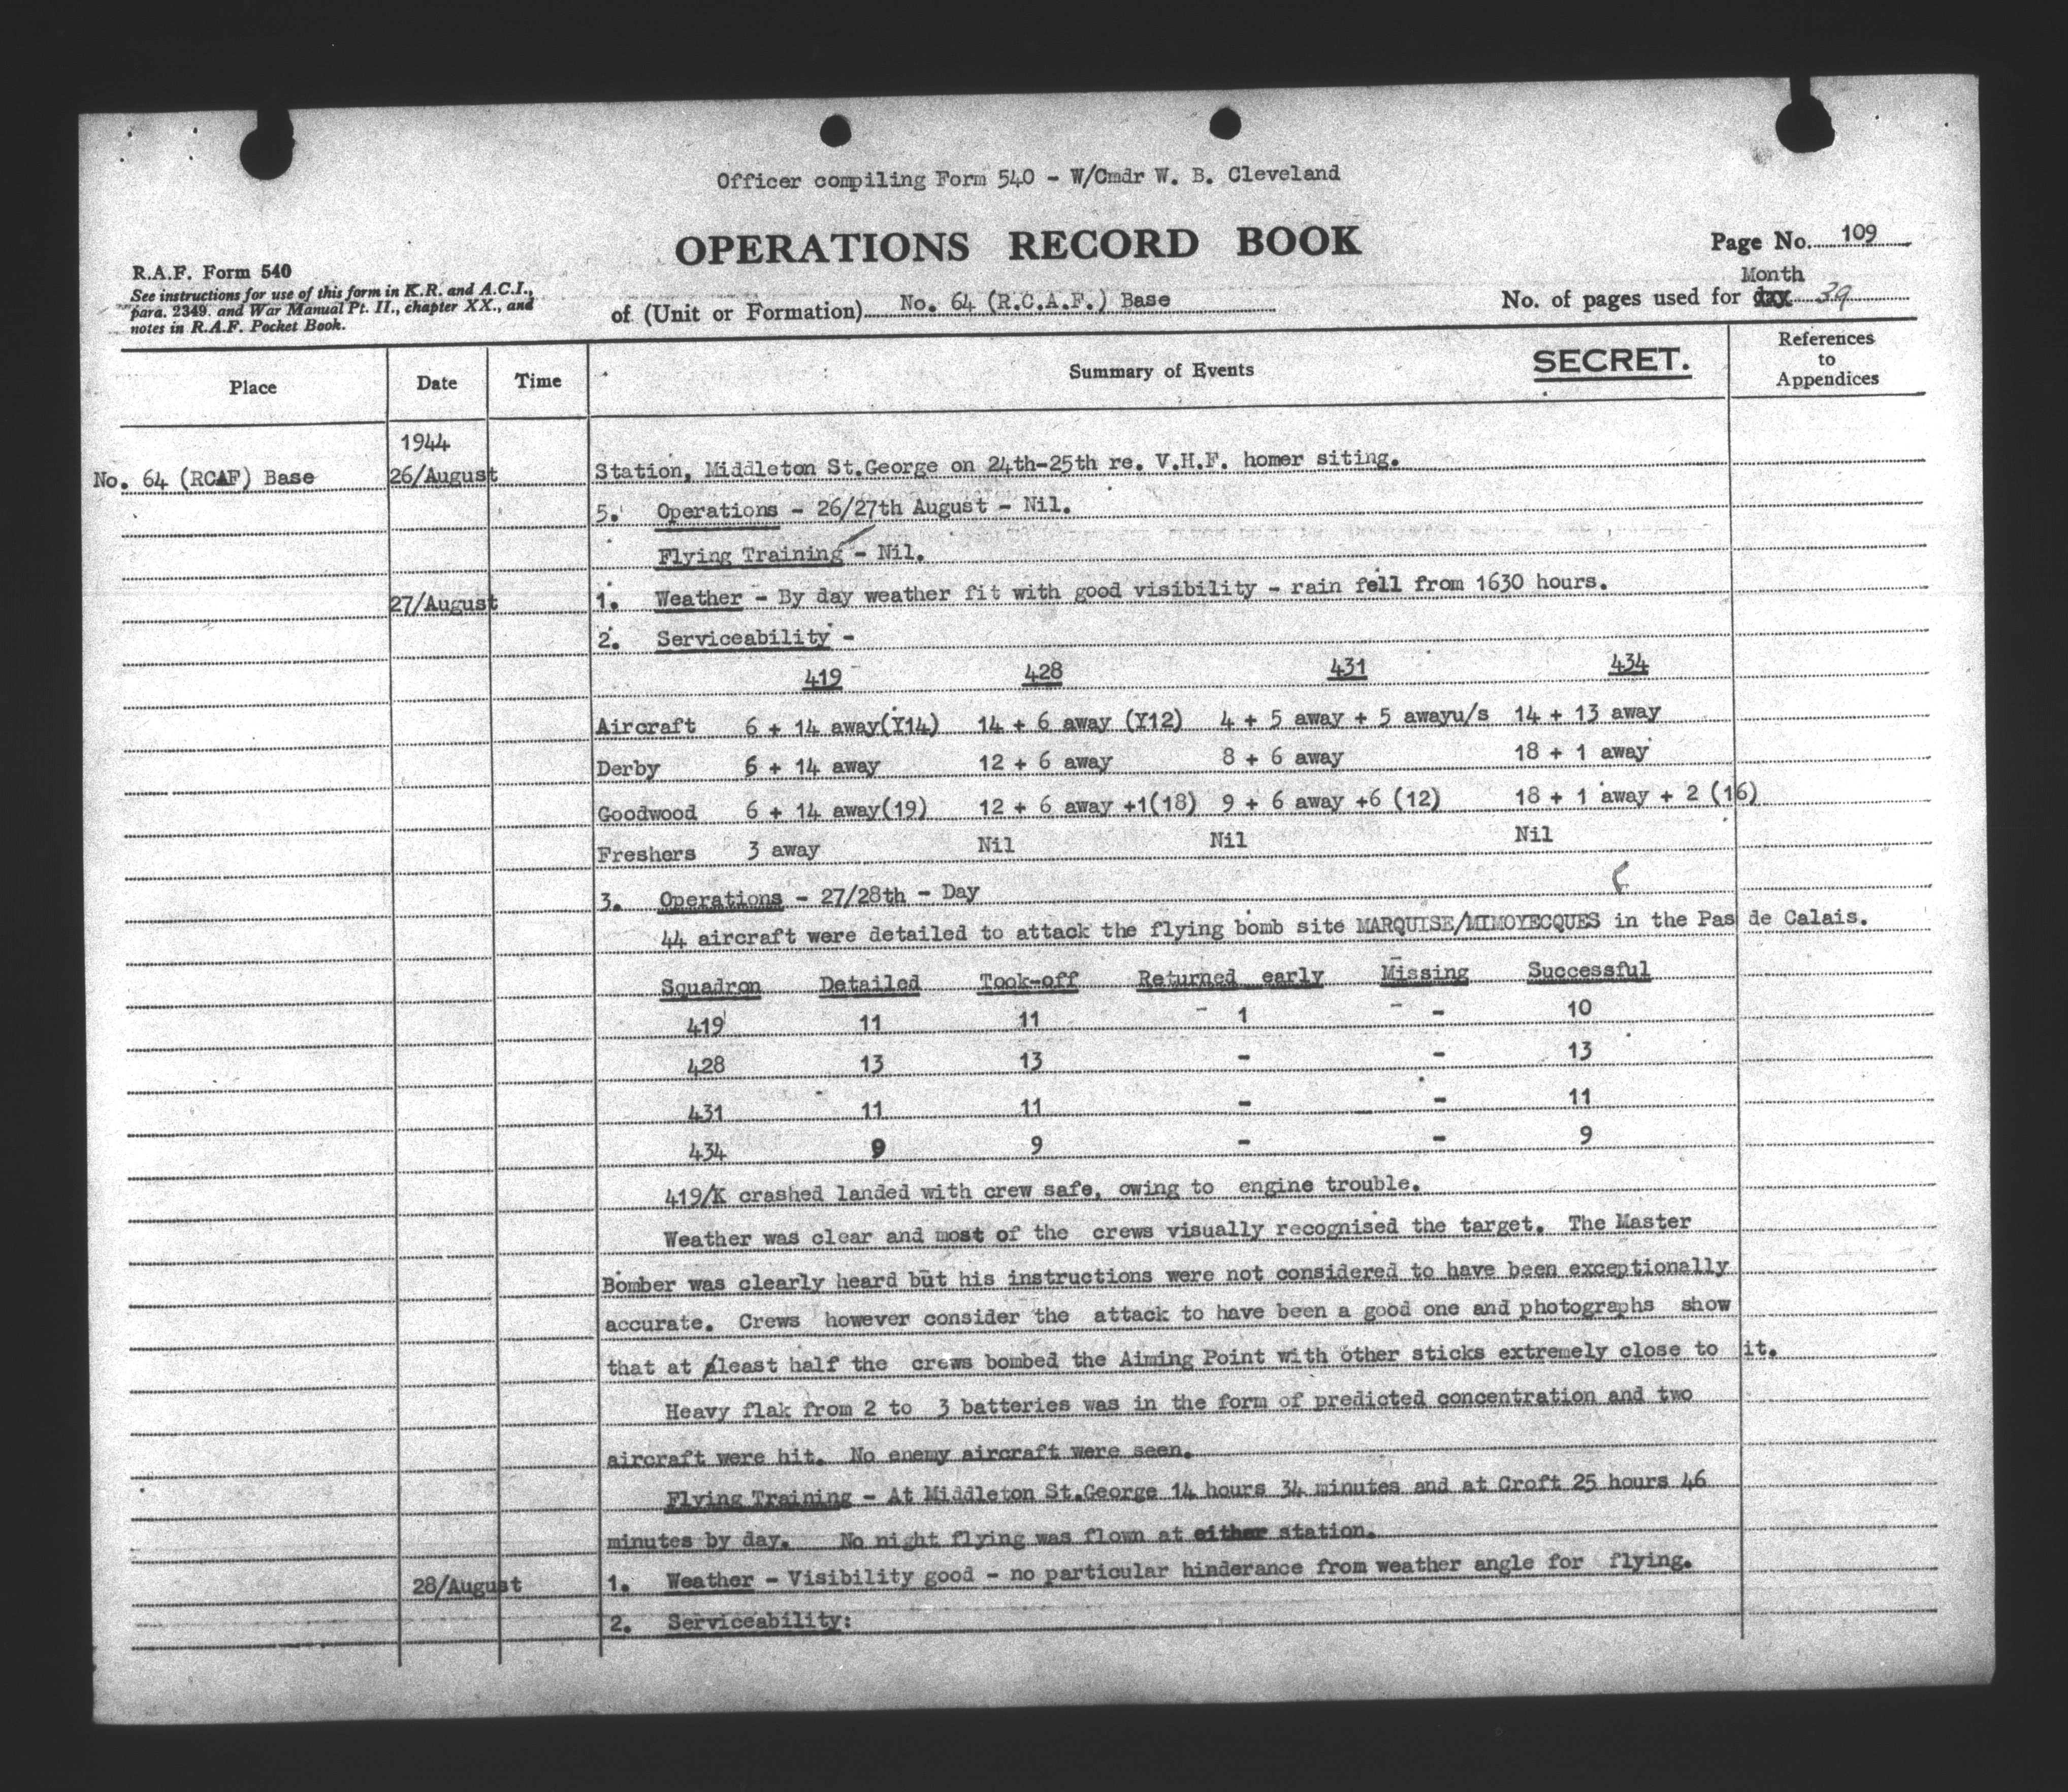 Officer compiling Form 540 - W/Cmdr W. B. Cleveland
OPERATIONS RECORD BOOK
Page No. 109
R.A.F. Form 540
See instructions for use of this form in K.R. and A.C.I.,
para. 2349. and War Manual Pt. II., chapter XX., and
notes in R.A.F. Pocket Book.
of (Unit or Formation) No. 64 (R.C.A.F.) Base
Month
No. of pages used for day 39
Place Date Time Summary of Events SECRET. References to Appendices
1944
No. 64 (RCAF) Base 26/August Station, Middleton St.George on 24th-25th re. V.H.F. homer siting.
5. Operations - 26/27th August - Nil.
Flying Training - Nil.
27/August 1. Weather - By day weather fit with good visibility - rain fell from 1630 hours.
2. Serviceability -
419 428 431 434
Aircraft 6 + 14 away(Y14) 14 + 6 away (Y12) 4 + 5 away + 5 awayu/s 14 + 13 away
Derby 6 + 14 away 12 + 6 away 8 + 6 away 18 + 1 away
Goodwood 6 + 14 away(19) 12 + 6 away +1(18) 9 + 6 away +6 (12) 18 + 1 away + 2 (16)
Freshers 3 away Nil Nil Nil
3. Operations - 27/28th - Day
44 aircraft were detailed to attack the flying bomb site MARQUISE/MIMOYECQUES in the Pas de Calais.
Squadron Detailed Took-off Returned early Missing Successful
419 11 11 1 - 10
428 13 13 - - 13
431 11 11 - - 11
434 9 9 - - 9
419/K crashed landed with crew safe, owing to engine trouble.
Weather was clear and most of the crews visually recognised the target. The Master
Bomber was clearly heard but his instructions were not considered to have been exceptionally
accurate. Crews however consider the attack to have been a good one and photographs show
that at least half the crews bombed the Aiming Point with other sticks extremely close to it.
Heavy flak from 2 to 3 batteries was in the form of predicted concentration and two
aircraft were hit. No enemy aircraft were seen.
Flying Training - At Middleton St.George 14 hours 34 minutes and at Croft 25 hours 46
minutes by day. No night flying was flown at either station.
28/August 1. Weather - Visibility good - no particular hinderance from weather angle for flying.
2. Serviceability: